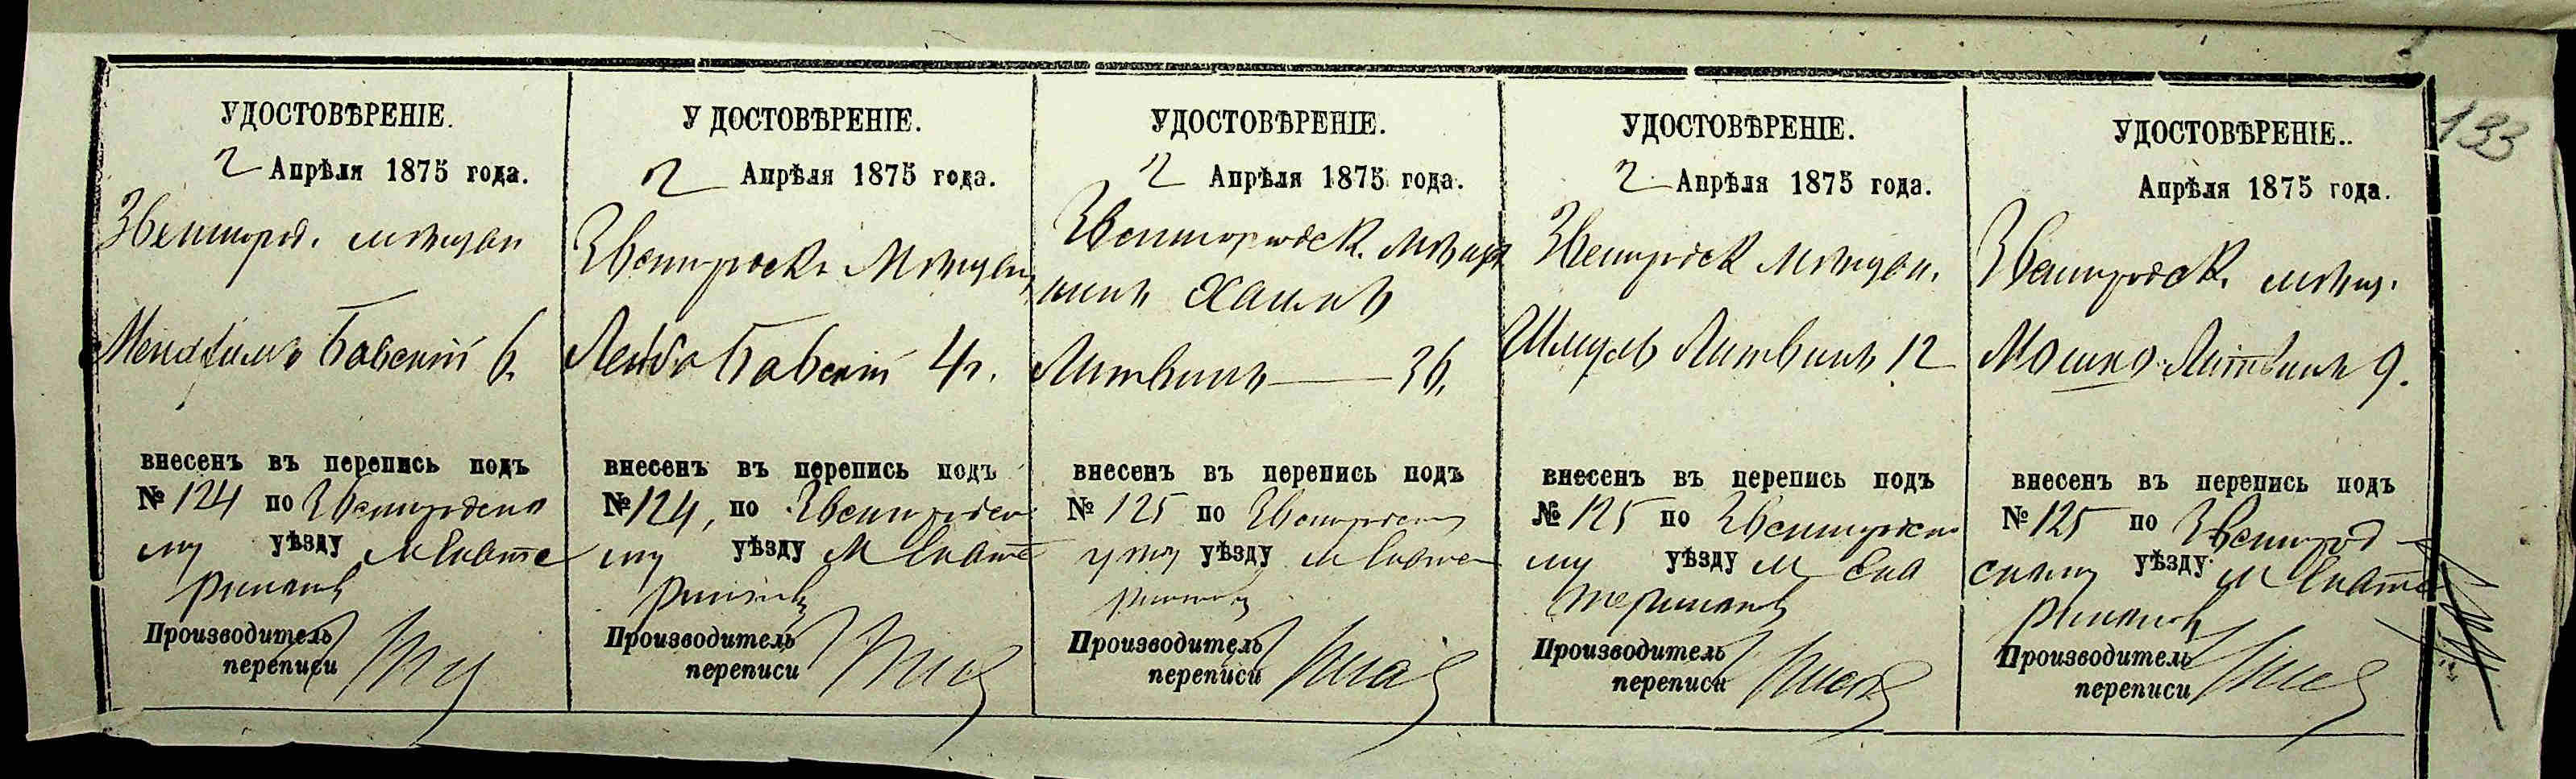 133
УДОСТОВѢРЕНІЕ.
2 Апрѣля 1875 года.
Звенигород. мѣщан
Бавскій 6.
внесенъ въ перепись подъ
№ 124 по Звенигородско
му уѣзду м Екате
ринополь
Производитель
переписи
У ДОСТОВѢРЕНІЕ.
2 Апрѣля 1875 года.
Звенигородск. Мѣщан
Лейба Бавскій 4 г.
внесенъ въ перепись подъ
№ 124, по Звенигородско
му уѣзду М Екате
Производитель
переписи
УДОСТОВѢРЕНІЕ.
2 Апрѣля 1875 года.
Звенигородск. мѣща
нинъ Хаимъ
Литвинъ — 36.
внесенъ въ перепись подъ
№ 125 по
уѣзду м Екате
Производитель
переписи
УДОСТОВѢРЕНІЕ.
2 Апрѣля 1875 года.
Звенигородск Мѣщан.
Шмуль Литвинъ 12
внесенъ въ перепись подъ
№ 125 по Звенигородско
му уѣзду м Ека
Производитель
переписи
УДОСТОВѢРЕНІЕ..
Апрѣля 1875 года.
Звенигородск. мѣщ.
Мошко Литвинъ 9.
внесенъ въ перепись подъ
№ 125 по Звенигород
скому уѣзду м Екате
Производитель
переписи